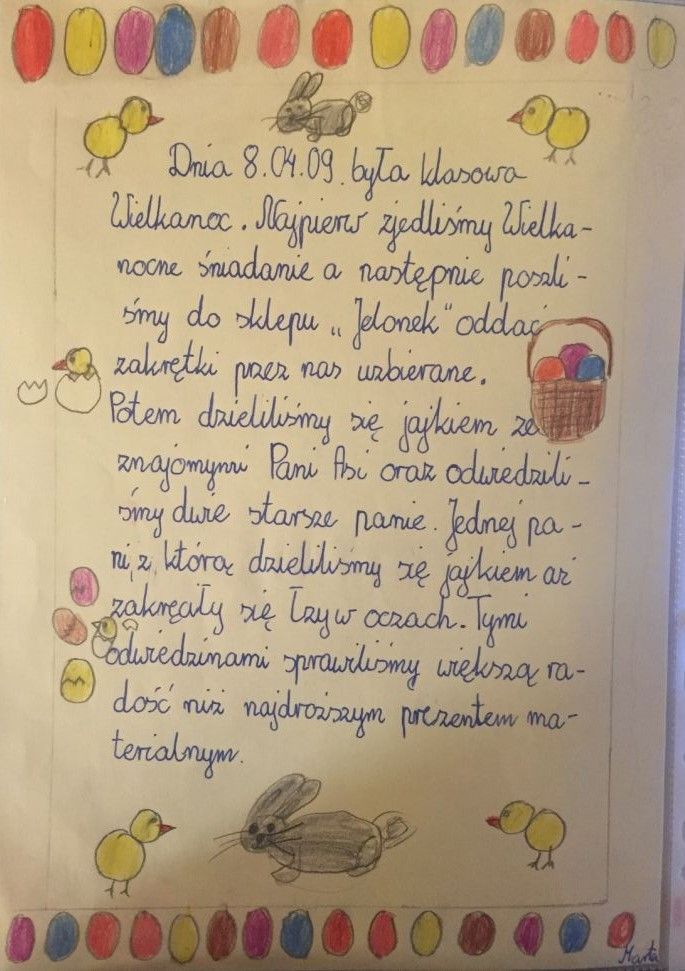 Dnia 8.04.09. była klasowa
Wielkanoc. Najpierw zjedliśmy Wielka-
nocne śniadanie a następnie poszli-
śmy do sklepu „Jelonek" oddać
zakrętki przez nas uzbierane.
Potem dzieliliśmy się jajkiem ze
znajomymi Pani Asi oraz odwiedzili-
śmy dwie starsze panie. Jednej pa-
ni, z którą dzieliliśmy się jajkiem aż
zakręciły się łzy w oczach. Tymi
odwiedzinami sprawiliśmy większą ra-
dość niż najdroższym prezentem ma-
terialnym.
Marta